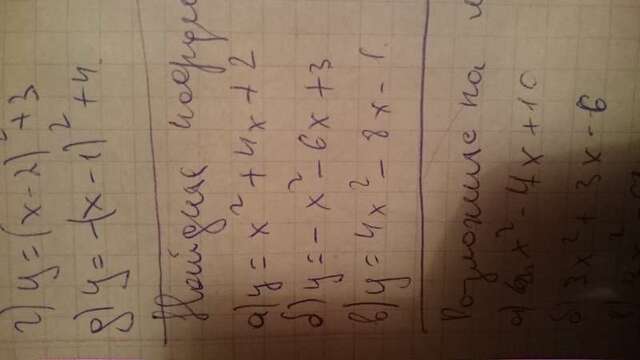 г) y = (x - 2)² + 3
д) y = -(x - 1)² + 4
Найдите коорди
а) y = x² + 4x + 2
б) y = - x² - 6x + 3
в) y = 4x² - 8x - 1.
Разложите на м
а) x² - 4x + 10
б) 3x² + 3x - 6